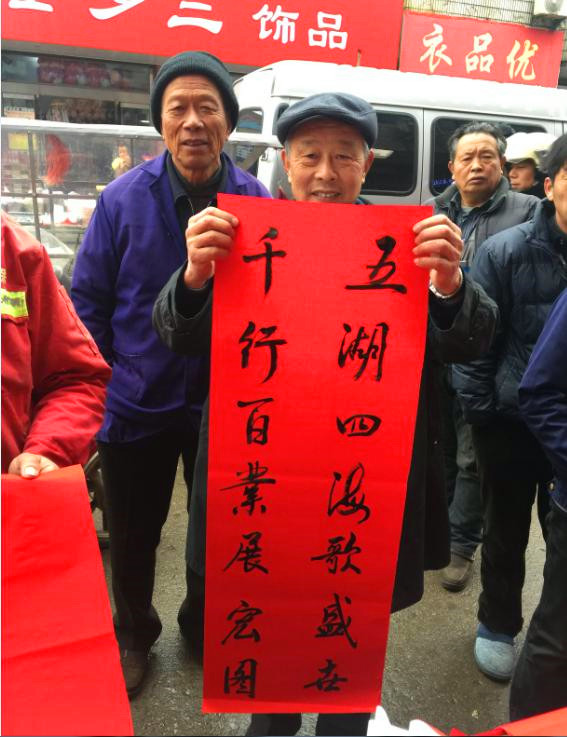 饰品
衣品优
五湖四海歌盛世
千行百業展宏图